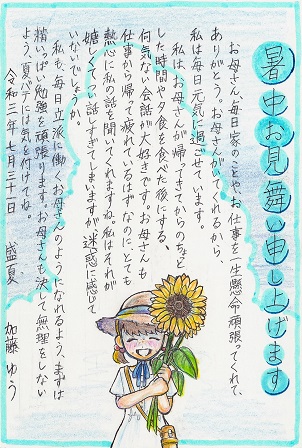 暑中お見舞い申し上げます
お母さん、毎日家のことや、お仕事を一生懸命頑張ってくれて、
ありがとう。お母さんがいてくれるから、
私は毎日元気に過ごせています。
私は、お母さんが帰ってきてからのちょっと
した時間や夕食を食べた後にする、
何気ない会話が大好きです。お母さんも
仕事から帰って疲れているはずなのに、とても
熱心に私の話を聞いてくれますね。私はそれが
嬉しくてつい話しすぎてしまいますが、迷惑に感じて
いないでしょうか。
私も、毎日立派に働くお母さんのようになれるよう、まずは
精いっぱい勉強を頑張ります。お母さんも決して無理をしない
よう、夏バテには気を付けてね。
令和三年七月三十一日 盛夏
加藤ゆう